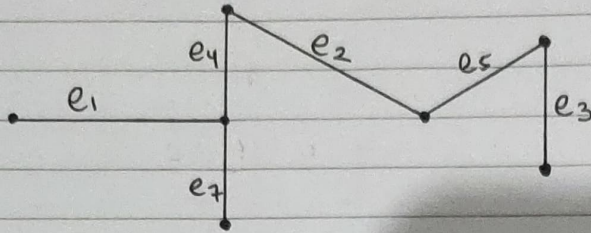 e4
e2
e5
e1
e3
e7